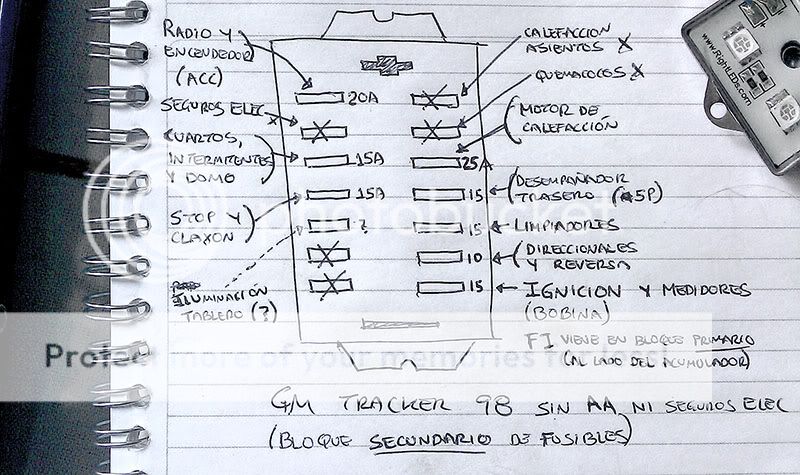 RADIO Y
ENCENDEDOR
(ACC)
20A
SEGUROS ELEC X
CUARTOS,
INTERMITENTES
Y DOMO
15A
STOP Y
CLAXON
15A
ILUMINACIÓN
TABLERO (?)
?
CALEFACCION
ASIENTOS X
QUEMACOCOS X
MOTOR DE
CALEFACCIÓN
25A
DESEMPAÑADOR
TRASERO (5P)
15
LIMPIADORES
15
DIRECCIONALES
Y REVERSA
10
IGNICION Y MEDIDORES
(BOBINA)
15
FI VIENE EN BLOQUE PRIMARIO
(AL LADO DEL ACUMULADOR)
GM TRACKER 98 SIN AA NI SEGUROS ELEC
(BLOQUE SECUNDARIO DE FUSIBLES)
www.RightLEDs.com
photobucket
Protect more of your memories for less!